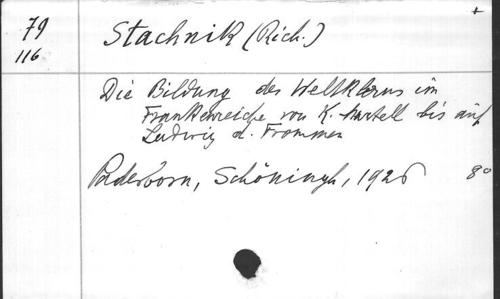 79
116
+
Stachnik (Rich.)
Die Bildung des Weltklerus im
Frankenreiche von K. Martell bis auf
Ludwig d. Frommen
Paderborn, Schöningh, 1926 8°